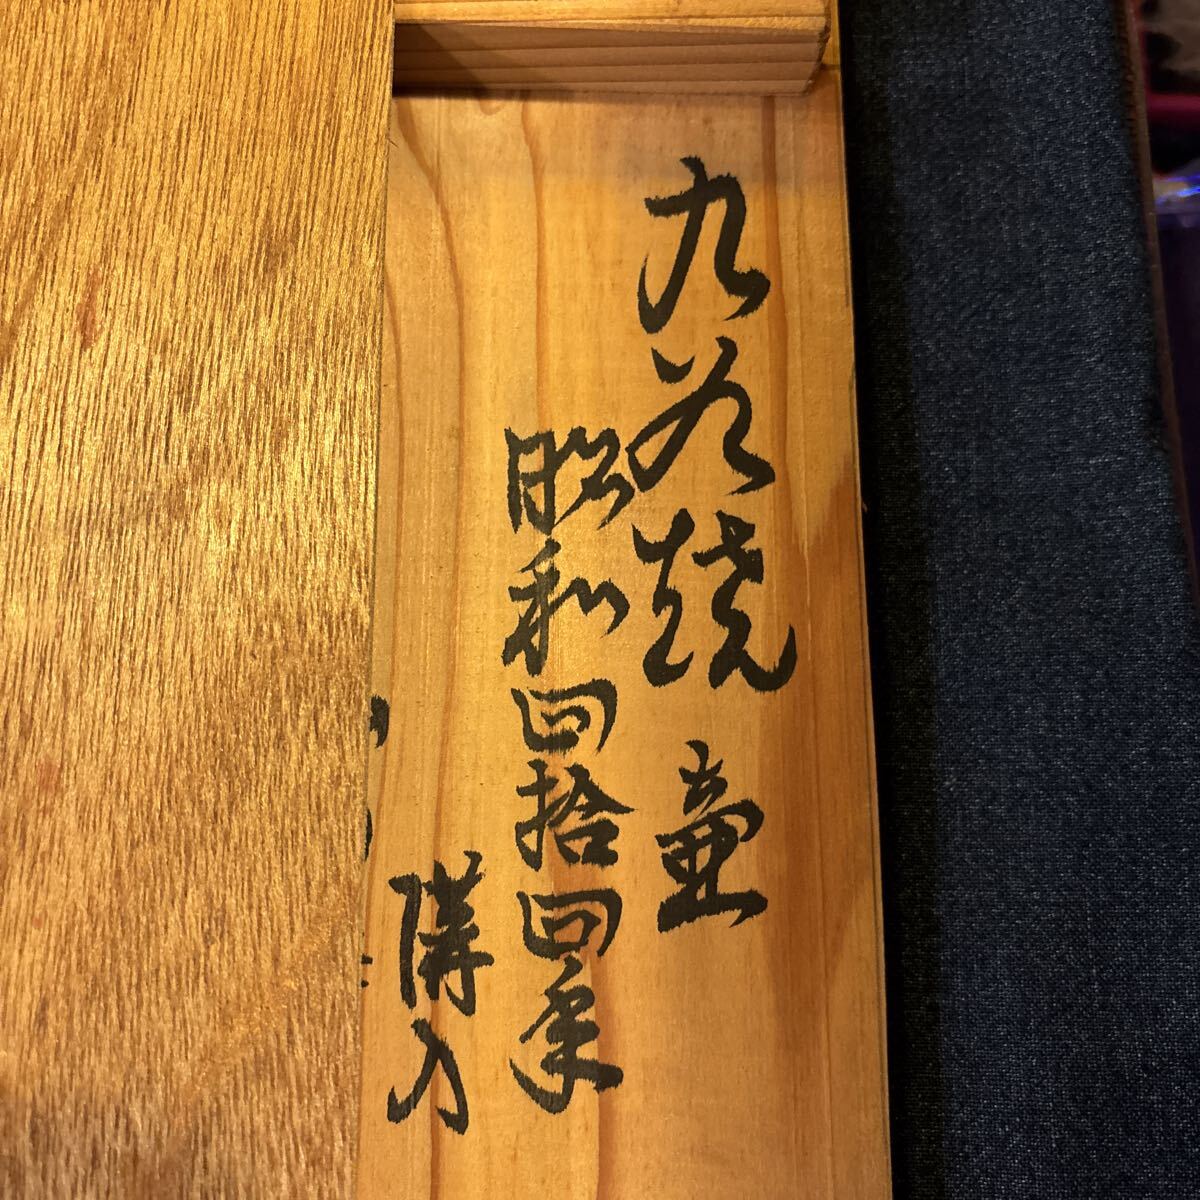 九谷焼 壷
昭和四拾四年
購入